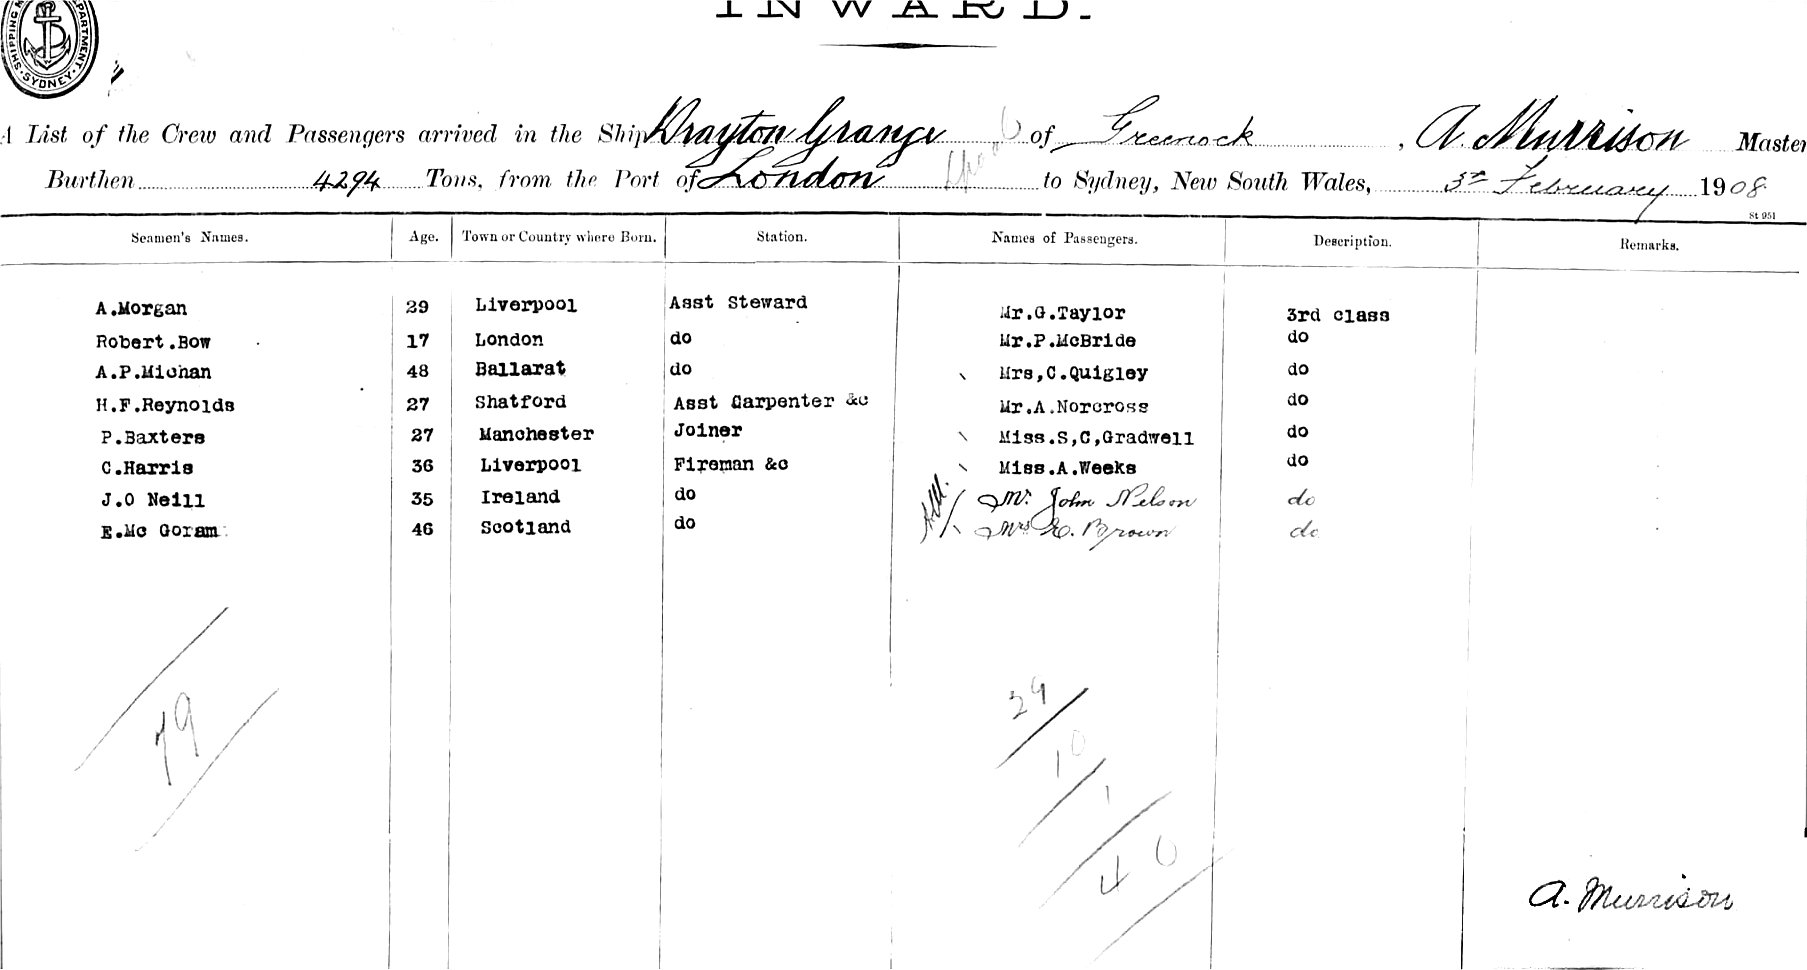 INWARD.
SYDNEY
A List of the Crew and Passengers arrived in the Ship Drayton Grange of Greenock, A. Murrison Master
Burthen 4294 Tons, from the Port of London to Sydney, New South Wales, 3rd February 1908
St 951
Seamen's Names. Age. Town or Country where Born. Station. Names of Passengers. Description. Remarks.
A.Morgan 29 Liverpool Asst Steward Mr.G.Taylor 3rd class
Robert.Bow 17 London do Mr.P.McBride do
A.P.Michan 48 Ballarat do Mrs,C.Quigley do
H.F.Reynolds 27 Shatford Asst Carpenter &c Mr.A.Norcross do
P.Baxters 27 Manchester Joiner Miss.S,C,Gradwell do
C.Harris 36 Liverpool Fireman &c Miss.A.Weeks do
J.O Neill 35 Ireland do Mr. John Nelson do
E.Mc Goram 46 Scotland do Mrs E. Brown do
79
29
10
1
40
A. Murrison